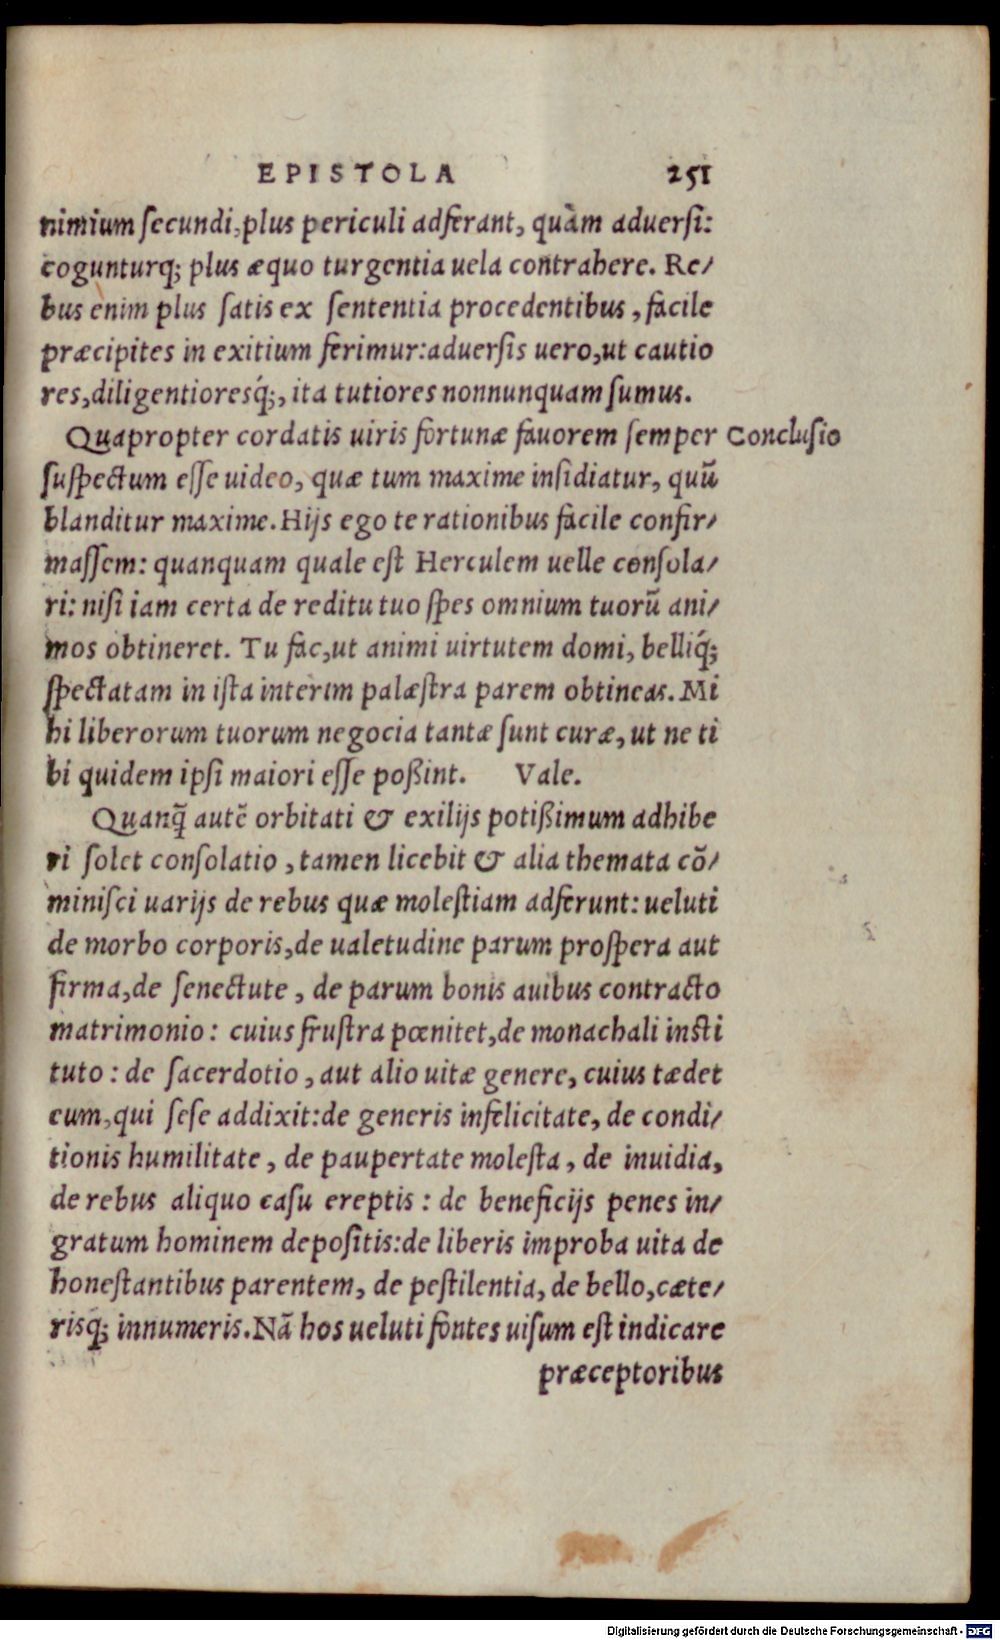 EPISTOLA 251
nimium ſecundi, plus periculi adferant, quàm aduerſi:
cogunturq́; plus æquo turgentia uela contrahere. Re/
bus enim plus ſatis ex ſententia procedentibus, facile
præcipites in exitium ferimur: aduerſis uero, ut cautio
res, diligentioresq́;, ita tutiores nonnunquam ſumus.
Quapropter cordatis uiris fortunæ fauorem ſemper Concluſio
ſuſpectum eſſe uideo, quæ tum maxime inſidiatur, quũ
blanditur maxime. Hijs ego te rationibus facile confir/
maſſem: quanquam quale eſt Herculem uelle conſola/
ri: niſi iam certa de reditu tuo ſpes omnium tuorũ ani/
mos obtineret. Tu fac, ut animi uirtutem domi, belliq́;
ſpectatam in iſta interim palæſtra parem obtineas. Mi
hi liberorum tuorum negocia tantæ ſunt curæ, ut ne ti
bi quidem ipſi maiori eſſe poßint. Vale.
Quanq̃ autẽ orbitati & exilijs potißimum adhibe
ri ſolet conſolatio, tamen licebit & alia themata cõ/
miniſci uarijs de rebus quæ moleſtiam adferunt: ueluti
de morbo corporis, de ualetudine parum proſpera aut
firma, de ſenectute, de parum bonis auibus contracto
matrimonio: cuius fruſtra pœnitet, de monachali inſti
tuto: de ſacerdotio, aut alio uitæ genere, cuius tædet
eum, qui ſeſe addixit: de generis infelicitate, de condi/
tionis humilitate, de paupertate moleſta, de inuidia,
de rebus aliquo caſu ereptis: de beneficijs penes in/
gratum hominem depoſitis: de liberis improba uita de
honeſtantibus parentem, de peſtilentia, de bello, cæte/
risq́; innumeris. Nã hos ueluti fontes uiſum eſt indicare
præceptoribus
Digitalisierung gefördert durch die Deutsche Forschungsgemeinschaft - DFG